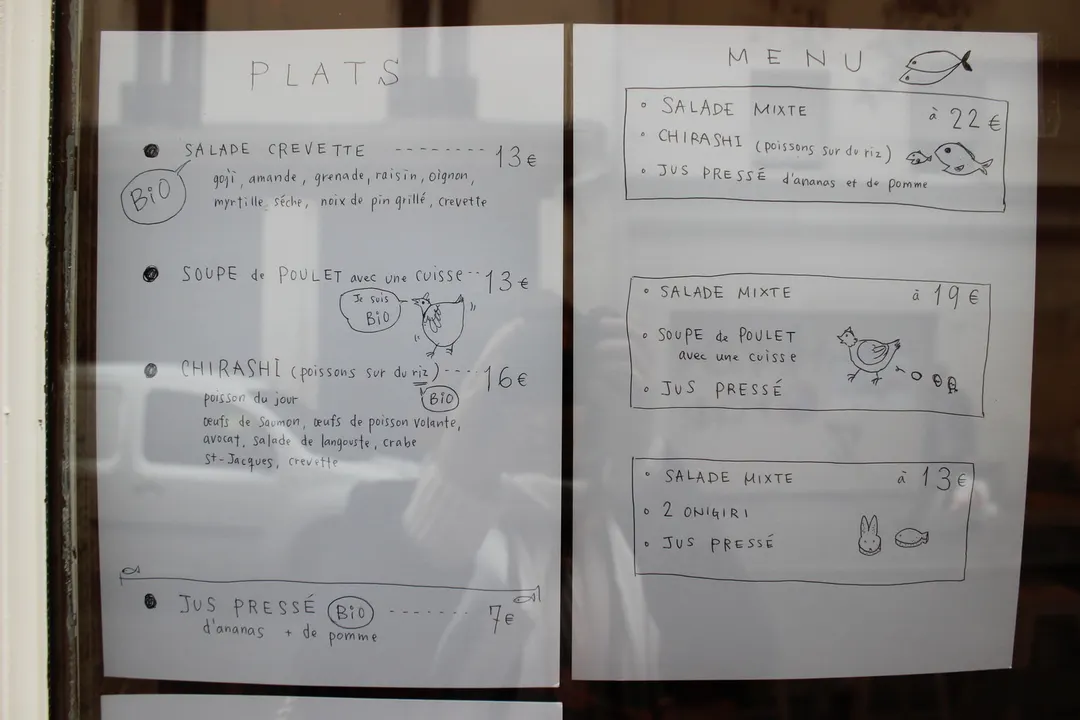 PLATS
SALADE CREVETTE -------- 13€
BiO
goji, amande, grenade, raisin, oignon,
myrtille séche, noix de pin grillé, crevette
SOUPE de POULET avec une cuisse -- 13€
Je suis
BiO
CHIRASHI (poissons sur du riz) ---- 16€
BiO
poisson du jour
œufs de Saumon, œufs de poisson volante,
avocat, salade de langouste, crabe
St-Jacques, crevette
JUS PRESSÉ BiO ------- 7€
d'ananas + de pomme
MENU
SALADE MIXTE à 22€
CHIRASHI (poissons sur du riz)
JUS PRESSÉ d'ananas et de pomme
SALADE MIXTE à 19€
SOUPE de POULET
avec une cuisse
JUS PRESSÉ
SALADE MIXTE à 13€
2 ONIGIRI
JUS PRESSÉ